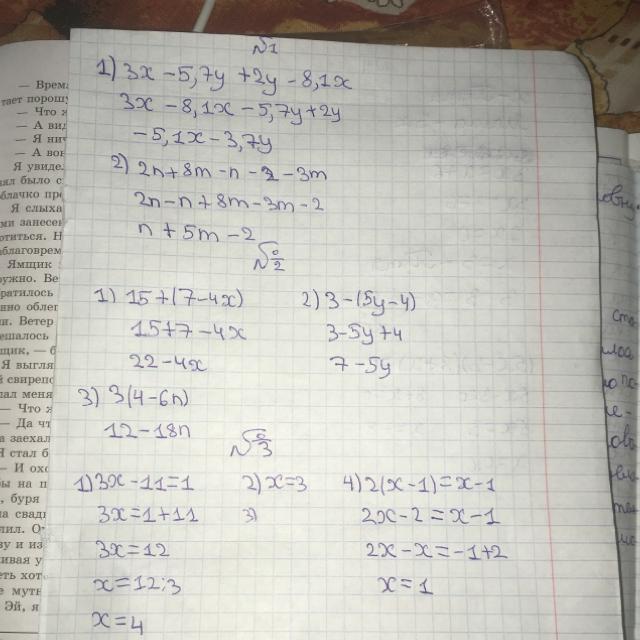 №1
1) 3x - 5,7y + 2y - 8,1x
3x - 8,1x - 5,7y + 2y
-5,1x - 3,7y
2) 2n + 8m - n - 2 - 3m
2n - n + 8m - 3m - 2
n + 5m - 2
№2
1) 15 + (7 - 4x)
15 + 7 - 4x
22 - 4x
2) 3 - (5y - 4)
3 - 5y + 4
7 - 5y
3) 3(4 - 6n)
12 - 18n
№3
1) 3x - 11 = 1
3x = 1 + 11
3x = 12
x = 12:3
x = 4
2) x = 3
3)
4) 2(x - 1) = x - 1
2x - 2 = x - 1
2x - x = -1 + 2
x = 1
— Время
тает порошу
— Что
— А вид
— Я нич
— А вон
Я увиде
было с
облачко
Я слыха
ми занесе
отиться. Н
благоврем
Ямщик
ружно. Ве
ратилось
нно облег
Ветер
шалось
щик, — б
Я выгля
свиреп
меня
— Что
— Да чт
заехал
Я стал б
— И охо
на п
буря
свадь
лил.
Эй, я